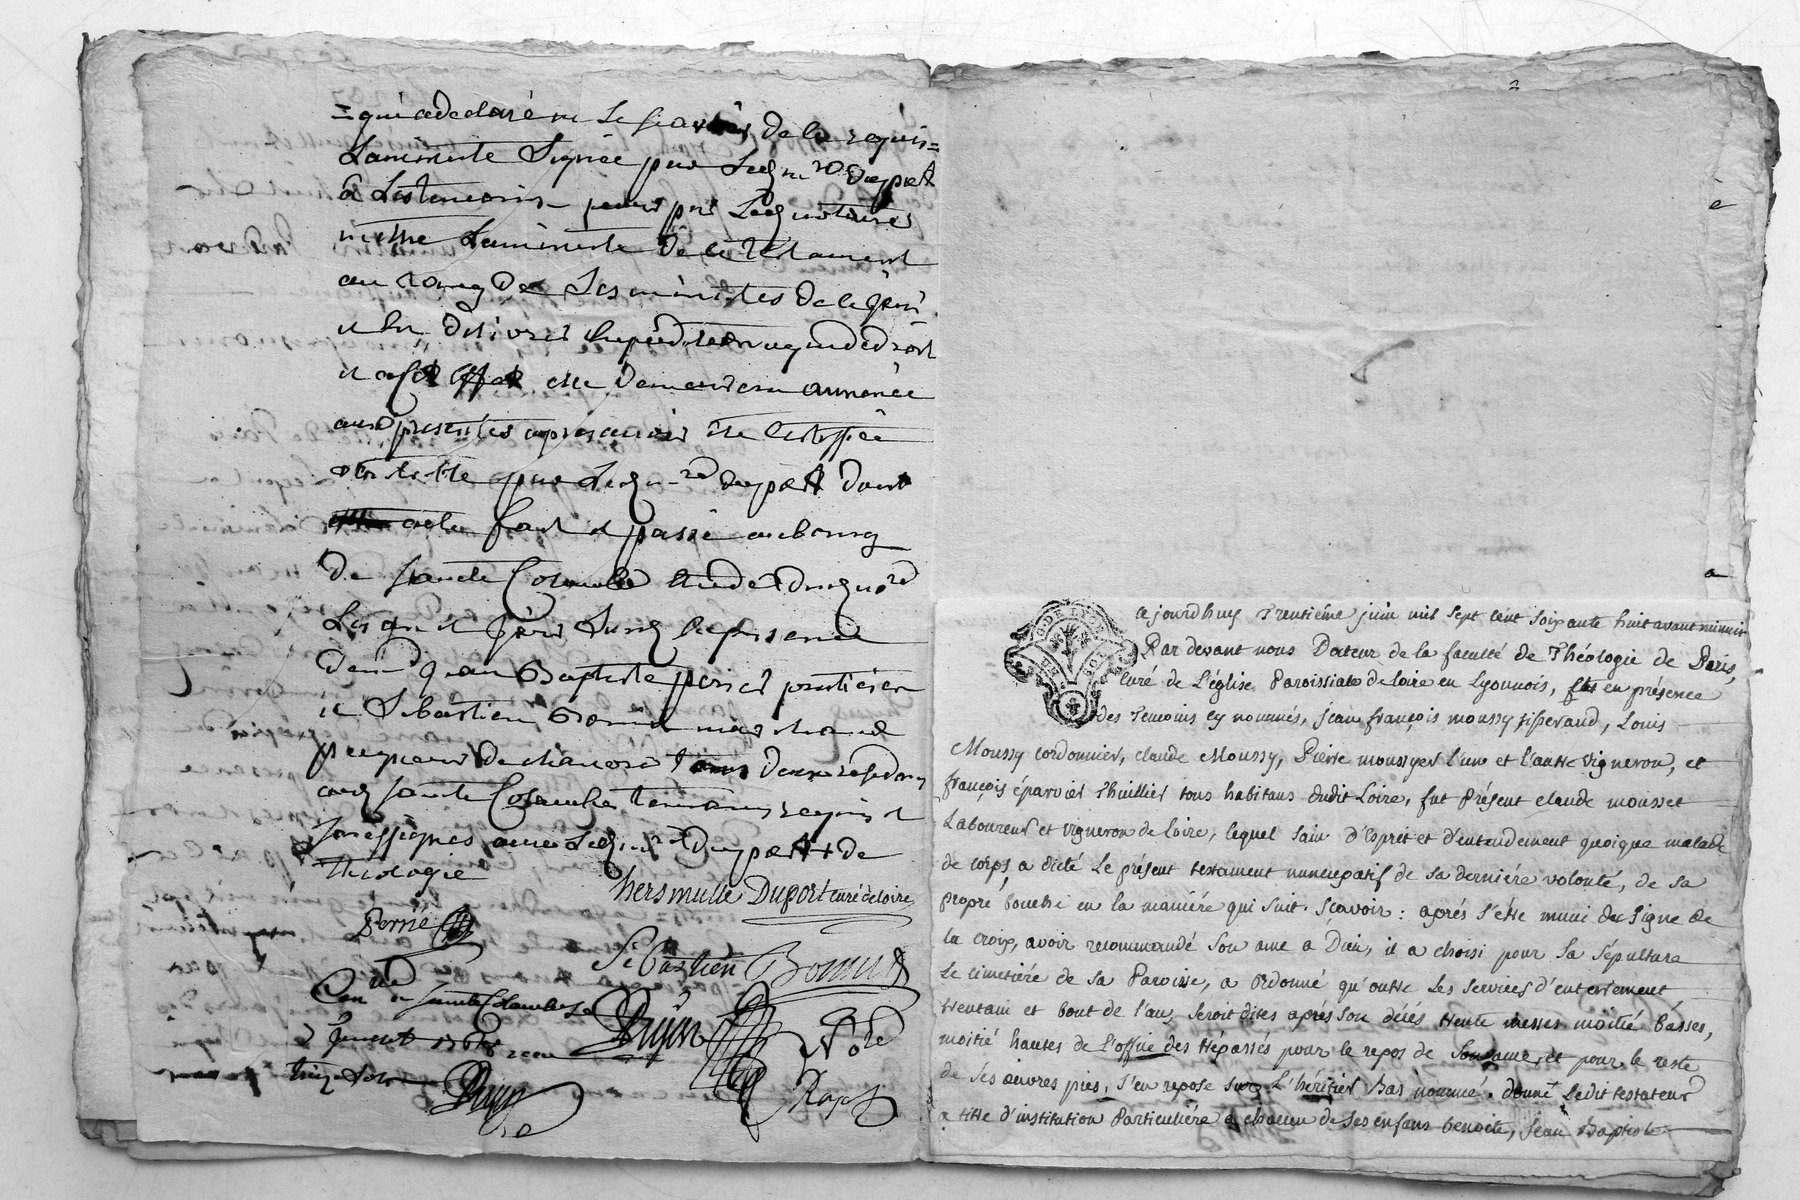 =quia declaré ne le scavoir de la requis=
La minute Signée par Led m.re Duport
à Les temoins pour par Led notaire
mettre La minute de ce testament
au rang de Ses minutes
et En délivrer Expedition a qui de droit
et a cet effet elle demeurera annexée
aux presentes apres avoir été Certiffiée
par Led m.re duport dont
acte fait et passé au bourg
De Sainte Colombe Etude dud no.re
Les an et jour Susd En presence
De m.r Jean Baptiste perier praticien
et Sebastien Bonnet marchand
de
aud Sainte Colombe temoins requis et
Soussignés avec Led m.re Duport de
Theologie
thersmulle Duport curé de loire
Perrié
Sébastien Bonnet
Con.lé a Sainte Colombe Le
2 Juillet 1768 reçu
treize sols
Drujon No.re
Roy.l
Drujon
GEN. DE LYON
Cejourdhuy Trentiéme juin mil sept cent soixante huit avant minuit
Par devant nous Docteur de la faculté de Théologie de Paris,
Curé de L'église Paroissiale de Loire en Lyonnois, et en présence
des Temoins cy nommés, Jean françois moussy tisserand, Louis
Moussy cordonnier, claude Moussy, Pierre moussyer l'un et l'autre vigneron, et
françois éparvier Thuillier tous habitans dudit Loire, fut Présent claude mousset
Laboureur et vigneron de Loire, lequel sain d'esprit et d'entendement quoique malade
de corps, a dicté Le présent testament nuncupatif de sa derniére volonté, de sa
propre bouche en la maniére qui suit. Sçavoir: aprés s'etre muni du signe de
la croix, avoir recommandé son ame a Dieu, il a choisi pour sa sépulture
Le cimetiére de sa Paroisse, a ordonné qu'outre Les services d'enterrement
trentain et bout de l'an, seroit dites aprés son décés trente messes moitié basses,
moitié hautes de l'office des trépassés pour le repos de son ame, et pour le reste
de ses œuvres pies, s'en repose sur L'héritier Bas nommé. donne Ledit testateur
a titre d'institution Particuliére a chacun de ses enfans benoite, Jean Baptiste